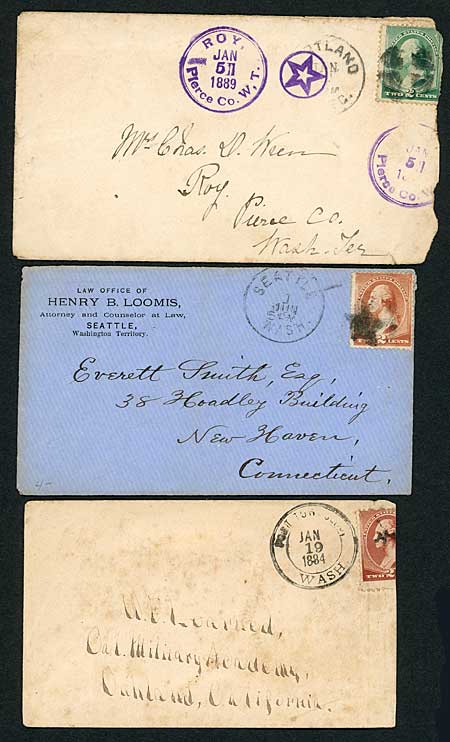 ROY,
JAN
5
1889
Pierce Co. W. T.
TLAND
TWO 2 CENTS
JAN
5
Pierce Co. W
Mr Chas. D.
Roy
Pierce Co.
Wash. Ter
LAW OFFICE OF
HENRY B. LOOMIS,
Attorney and Counselor at Law,
SEATTLE,
Washington Territory.
SEATTLE
WASH.
2 CENTS
Everett Smith, Esq,
38 Hoadley Building
New Haven,
Connecticut.
JAN
19
1884
WASH
TWO 2
W. E. Learned,
Cal. Military Academy,
Oakland, California.
4-